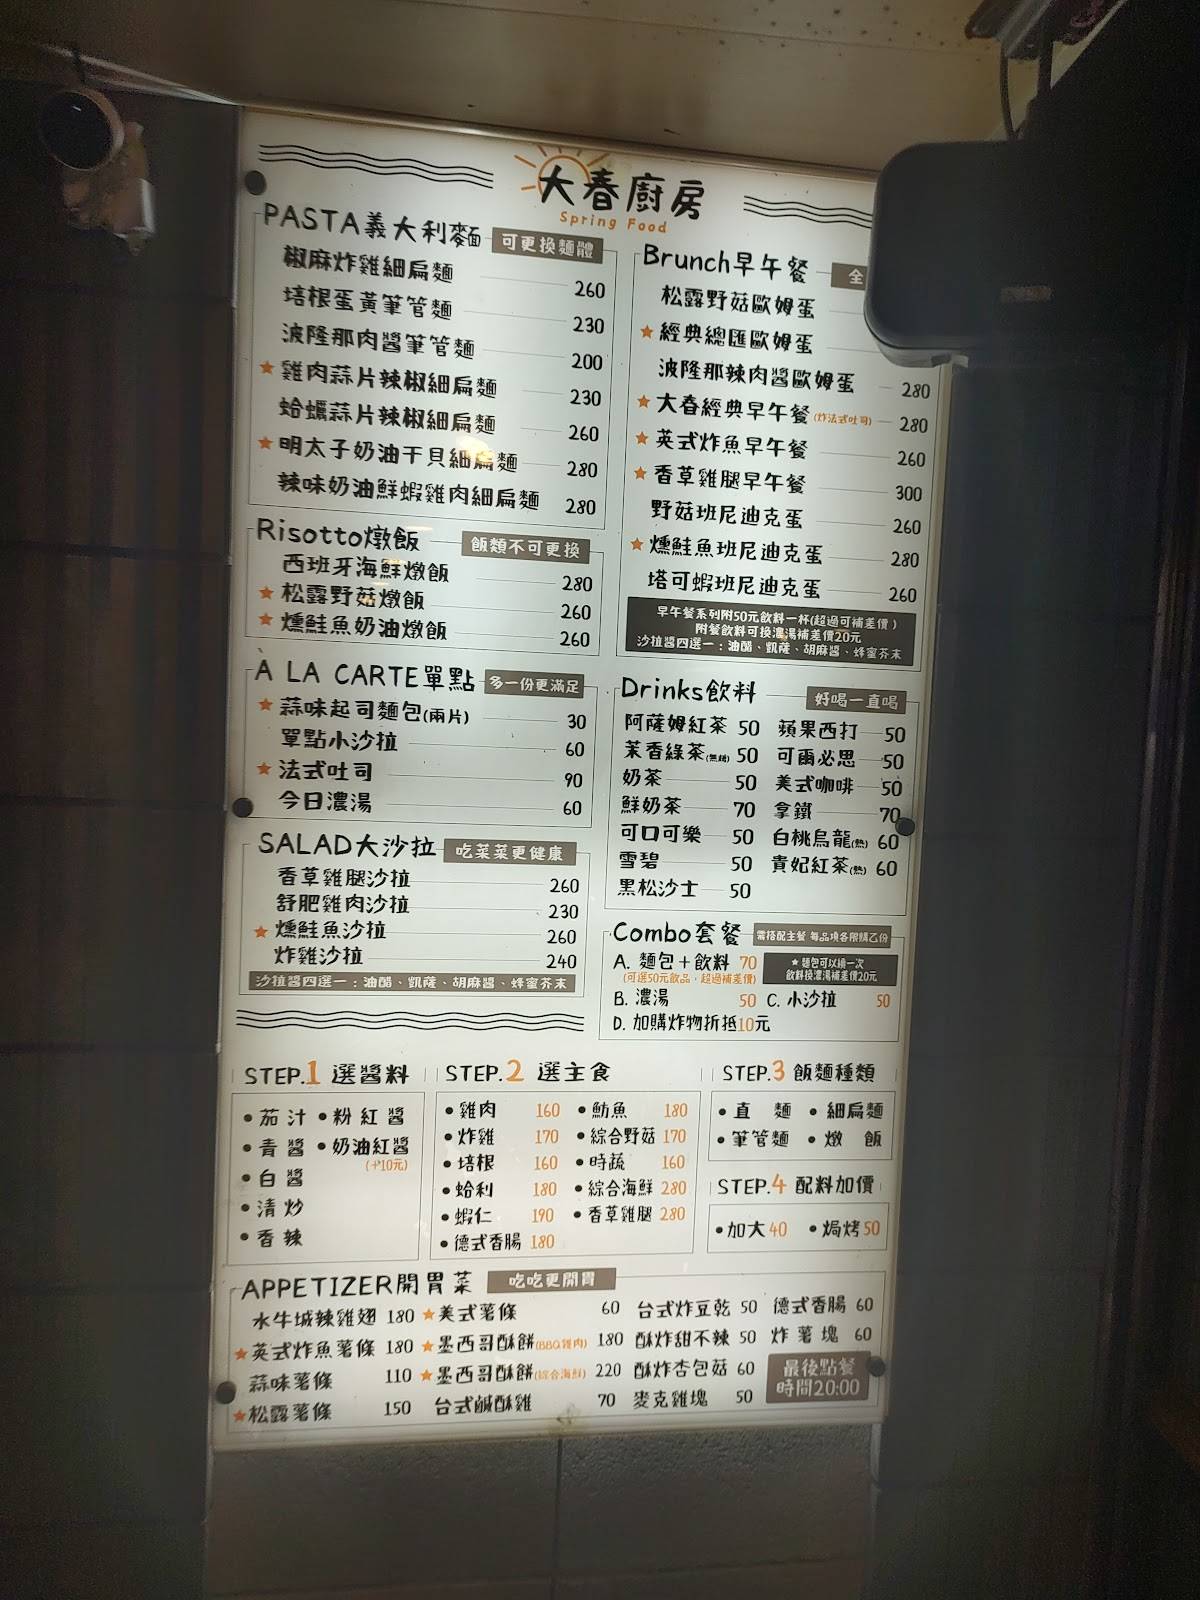 大春廚房
Spring Food
PASTA義大利麵 可更換麵體
椒麻炸雞細扁麵 260
培根蛋黃筆管麵 230
波隆那肉醬筆管麵 200
★ 雞肉蒜片辣椒細扁麵 230
蛤蠣蒜片辣椒細扁麵 260
★ 明太子奶油干貝細扁麵 280
辣味奶油鮮蝦雞肉細扁麵 280
Risotto燉飯 飯類不可更換
西班牙海鮮燉飯 280
★ 松露野菇燉飯 260
★ 燻鮭魚奶油燉飯 260
À LA CARTE單點 多一份更滿足
★ 蒜味起司麵包(兩片) 30
單點小沙拉 60
★ 法式吐司 90
今日濃湯 60
SALAD大沙拉 吃菜菜更健康
香草雞腿沙拉 260
舒肥雞肉沙拉 230
★ 燻鮭魚沙拉 260
炸雞沙拉 240
沙拉醬四選一：油醋、凱薩、胡麻醬、蜂蜜芥末
Brunch早午餐 全
松露野菇歐姆蛋
★ 經典總匯歐姆蛋
波隆那辣肉醬歐姆蛋 280
★ 大春經典早午餐(炸法式吐司) 280
★ 英式炸魚早午餐 260
★ 香草雞腿早午餐 300
野菇班尼迪克蛋 260
★ 燻鮭魚班尼迪克蛋 280
塔可蝦班尼迪克蛋 260
早午餐系列附50元飲料一杯(超過可補差價)
附餐飲料可換濃湯補差價20元
沙拉醬四選一：油醋、凱薩、胡麻醬、蜂蜜芥末
Drinks飲料 好喝一直喝
阿薩姆紅茶 50 蘋果西打 50
茉香綠茶(無糖) 50 可爾必思 50
奶茶 50 美式咖啡 50
鮮奶茶 70 拿鐵 70
可口可樂 50 白桃烏龍(熱) 60
雪碧 50 貴妃紅茶(熱) 60
黑松沙士 50
Combo套餐 需搭配主餐 每品項各限購乙份
A. 麵包＋飲料 70 ★麵包可以續一次
(可選50元飲品，超過補差價) 飲料換濃湯補差價20元
B. 濃湯 50 C. 小沙拉 50
D. 加購炸物折抵10元
STEP.1 選醬料
• 茄汁 • 粉紅醬
• 青醬 • 奶油紅醬
(+10元)
• 白醬
• 清炒
• 香辣
STEP.2 選主食
• 雞肉 160 • 魴魚 180
• 炸雞 170 • 綜合野菇 170
• 培根 160 • 時蔬 160
• 蛤利 180 • 綜合海鮮 280
• 蝦仁 190 • 香草雞腿 280
• 德式香腸 180
STEP.3 飯麵種類
• 直麵 • 細扁麵
• 筆管麵 • 燉飯
STEP.4 配料加價
• 加大 40 • 焗烤 50
APPETIZER開胃菜 吃吃更開胃
水牛城辣雞翅 180 ★ 美式薯條 60 台式炸豆乾 50 德式香腸 60
★ 英式炸魚薯條 180 ★ 墨西哥酥餅(BBQ雞肉) 180 酥炸甜不辣 50 炸薯塊 60
蒜味薯條 110 ★ 墨西哥酥餅(綜合海鮮) 220 酥炸杏包菇 60
★ 松露薯條 150 台式鹹酥雞 70 麥克雞塊 50
最後點餐
時間20:00